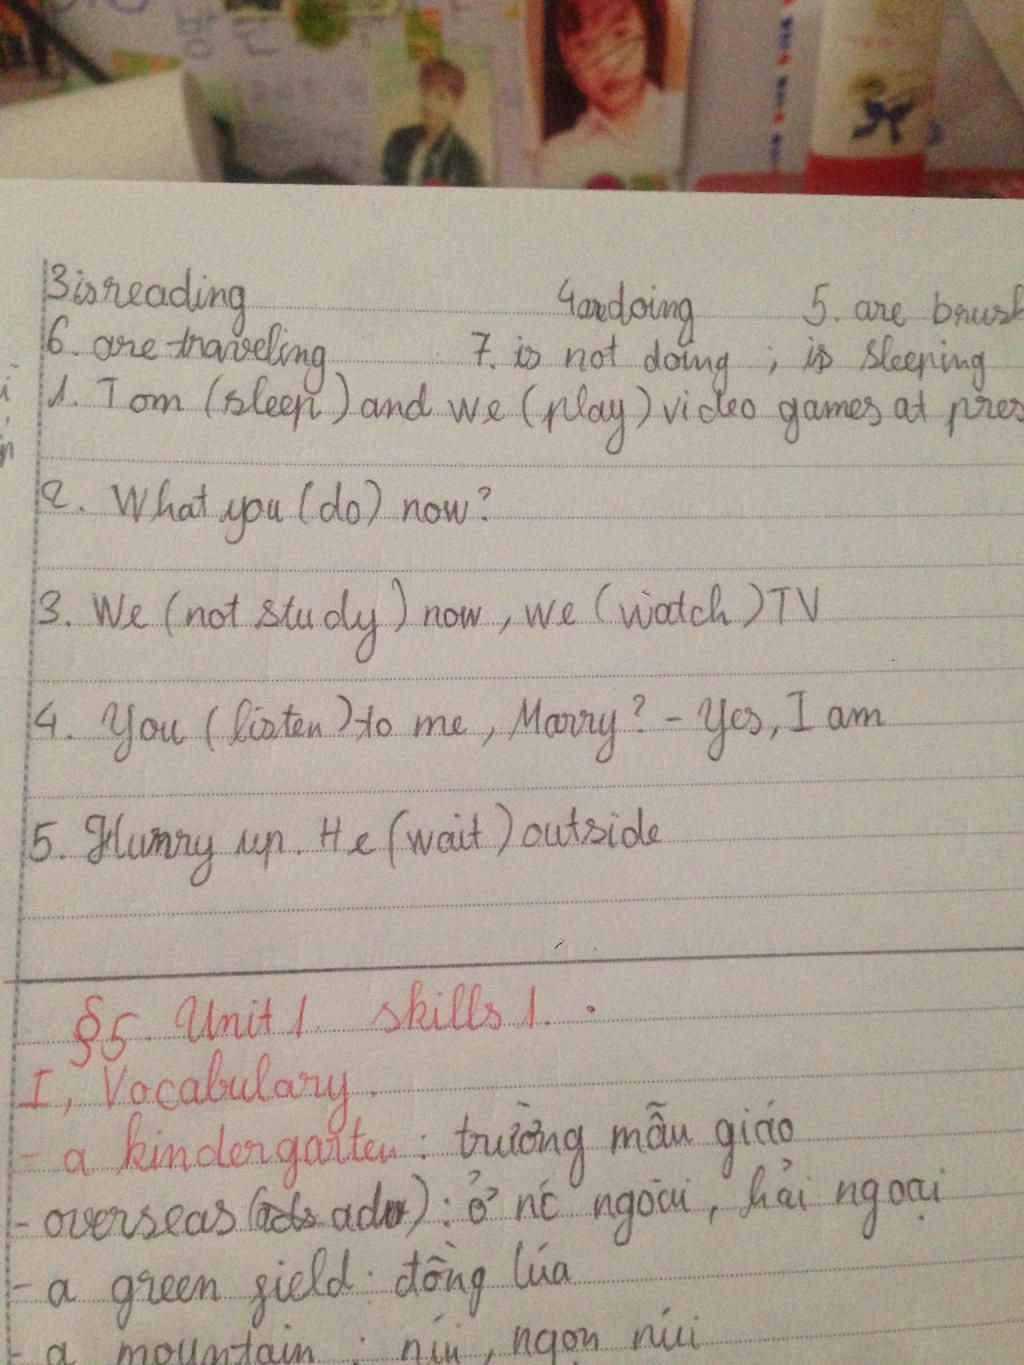 3 is reading 4 are doing 5. are brush
6. are traveling 7. is not doing ; is sleeping
1. Tom (sleep) and we (play) video games at pres
2. What you (do) now?
3. We (not study) now, we (watch) TV
4. You (listen) to me, Marry? - Yes, I am
5. Hurry up. He (wait) outside
§5. Unit 1. skills 1.
I, Vocabulary.
- a kindergarten : trường mẫu giáo
- overseas (adv) : ở nc ngoài, hải ngoại
- a green field : đồng lúa
- a mountain : núi, ngọn núi